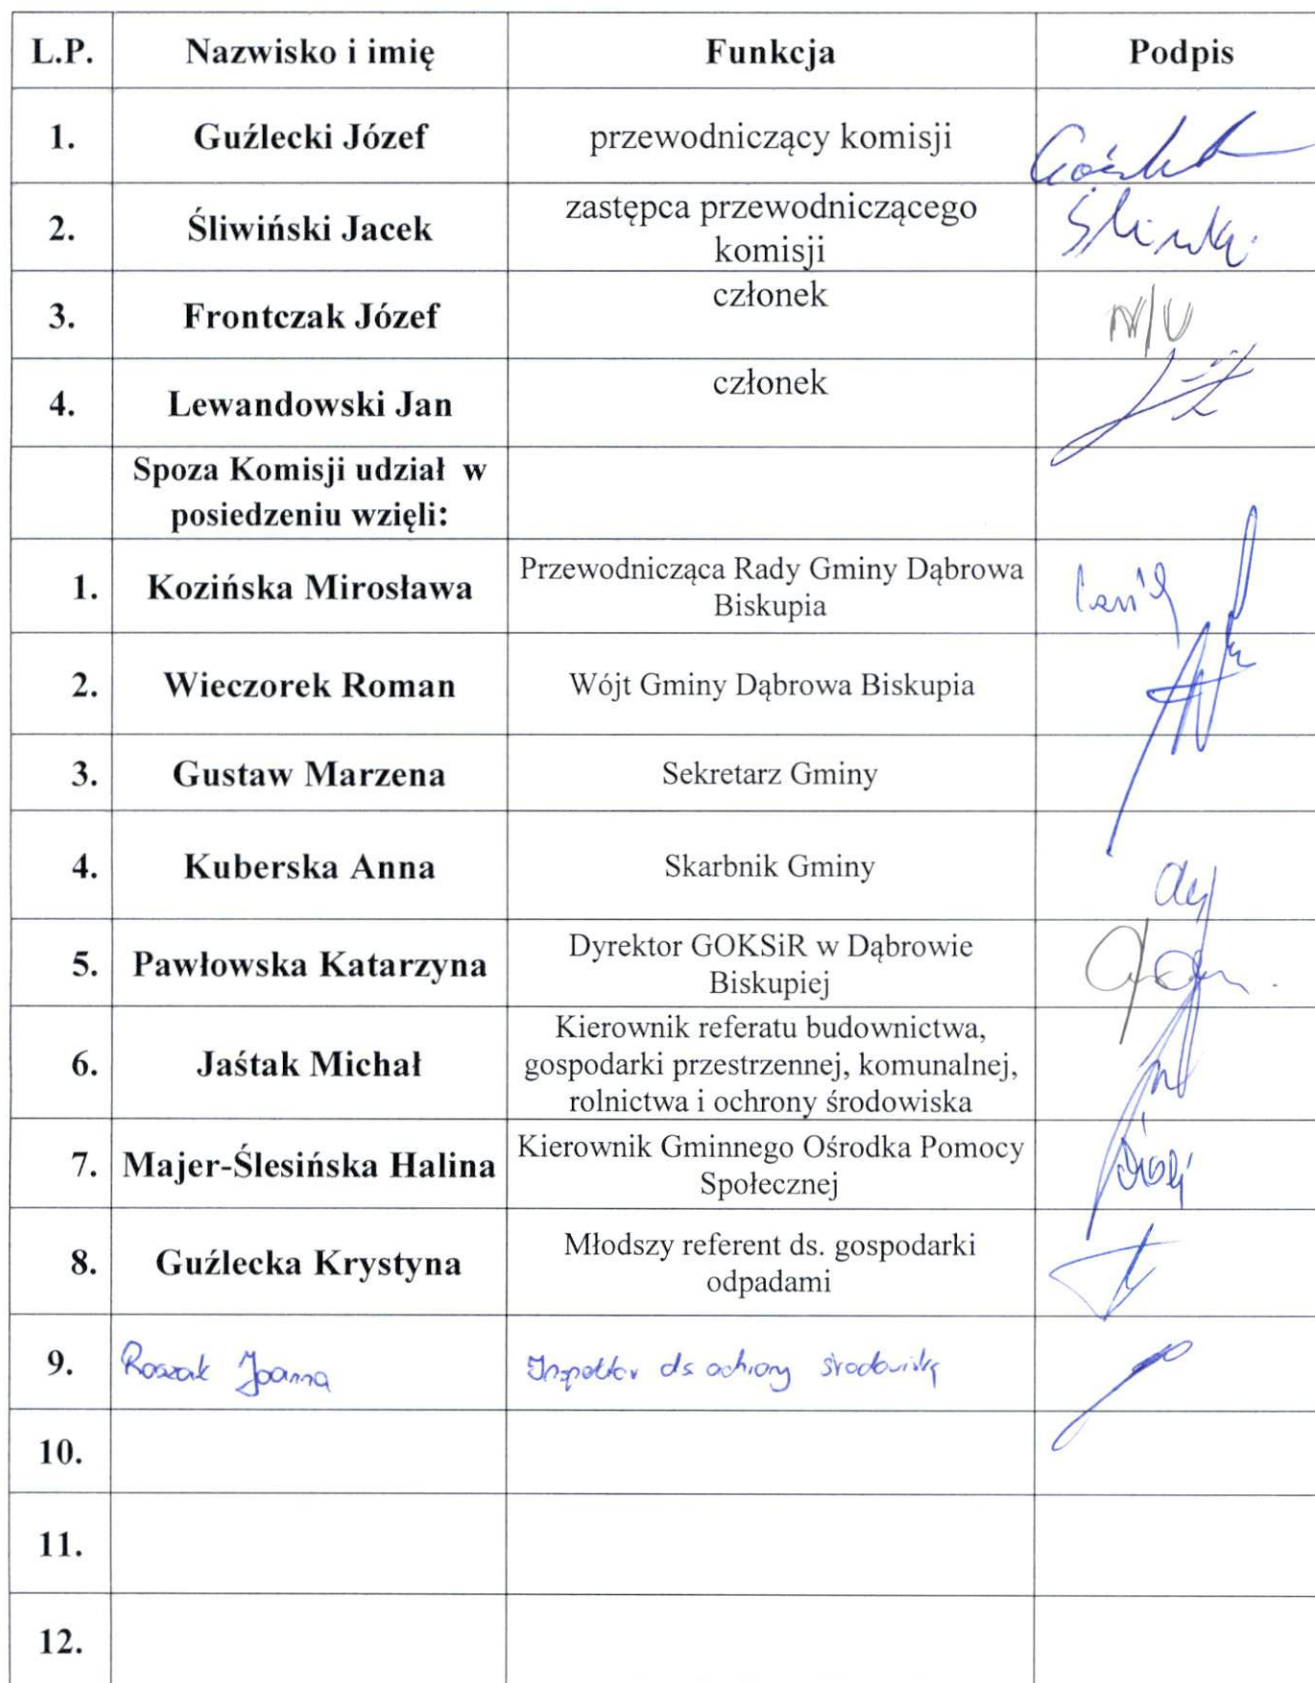 L.P. Nazwisko i imię Funkcja Podpis
1. Guźlecki Józef przewodniczący komisji
2. Śliwiński Jacek zastępca przewodniczącego
komisji
3. Frontczak Józef członek
4. Lewandowski Jan członek
Spoza Komisji udział w
posiedzeniu wzięli:
1. Kozińska Mirosława Przewodnicząca Rady Gminy Dąbrowa
Biskupia
2. Wieczorek Roman Wójt Gminy Dąbrowa Biskupia
3. Gustaw Marzena Sekretarz Gminy
4. Kuberska Anna Skarbnik Gminy
5. Pawłowska Katarzyna Dyrektor GOKSiR w Dąbrowie
Biskupiej
6. Jaśtak Michał Kierownik referatu budownictwa,
gospodarki przestrzennej, komunalnej,
rolnictwa i ochrony środowiska
7. Majer-Ślesińska Halina Kierownik Gminnego Ośrodka Pomocy
Społecznej
8. Guźlecka Krystyna Młodszy referent ds. gospodarki
odpadami
9. Roszak Joanna Inspektor ds ochrony środowiska
10.
11.
12.